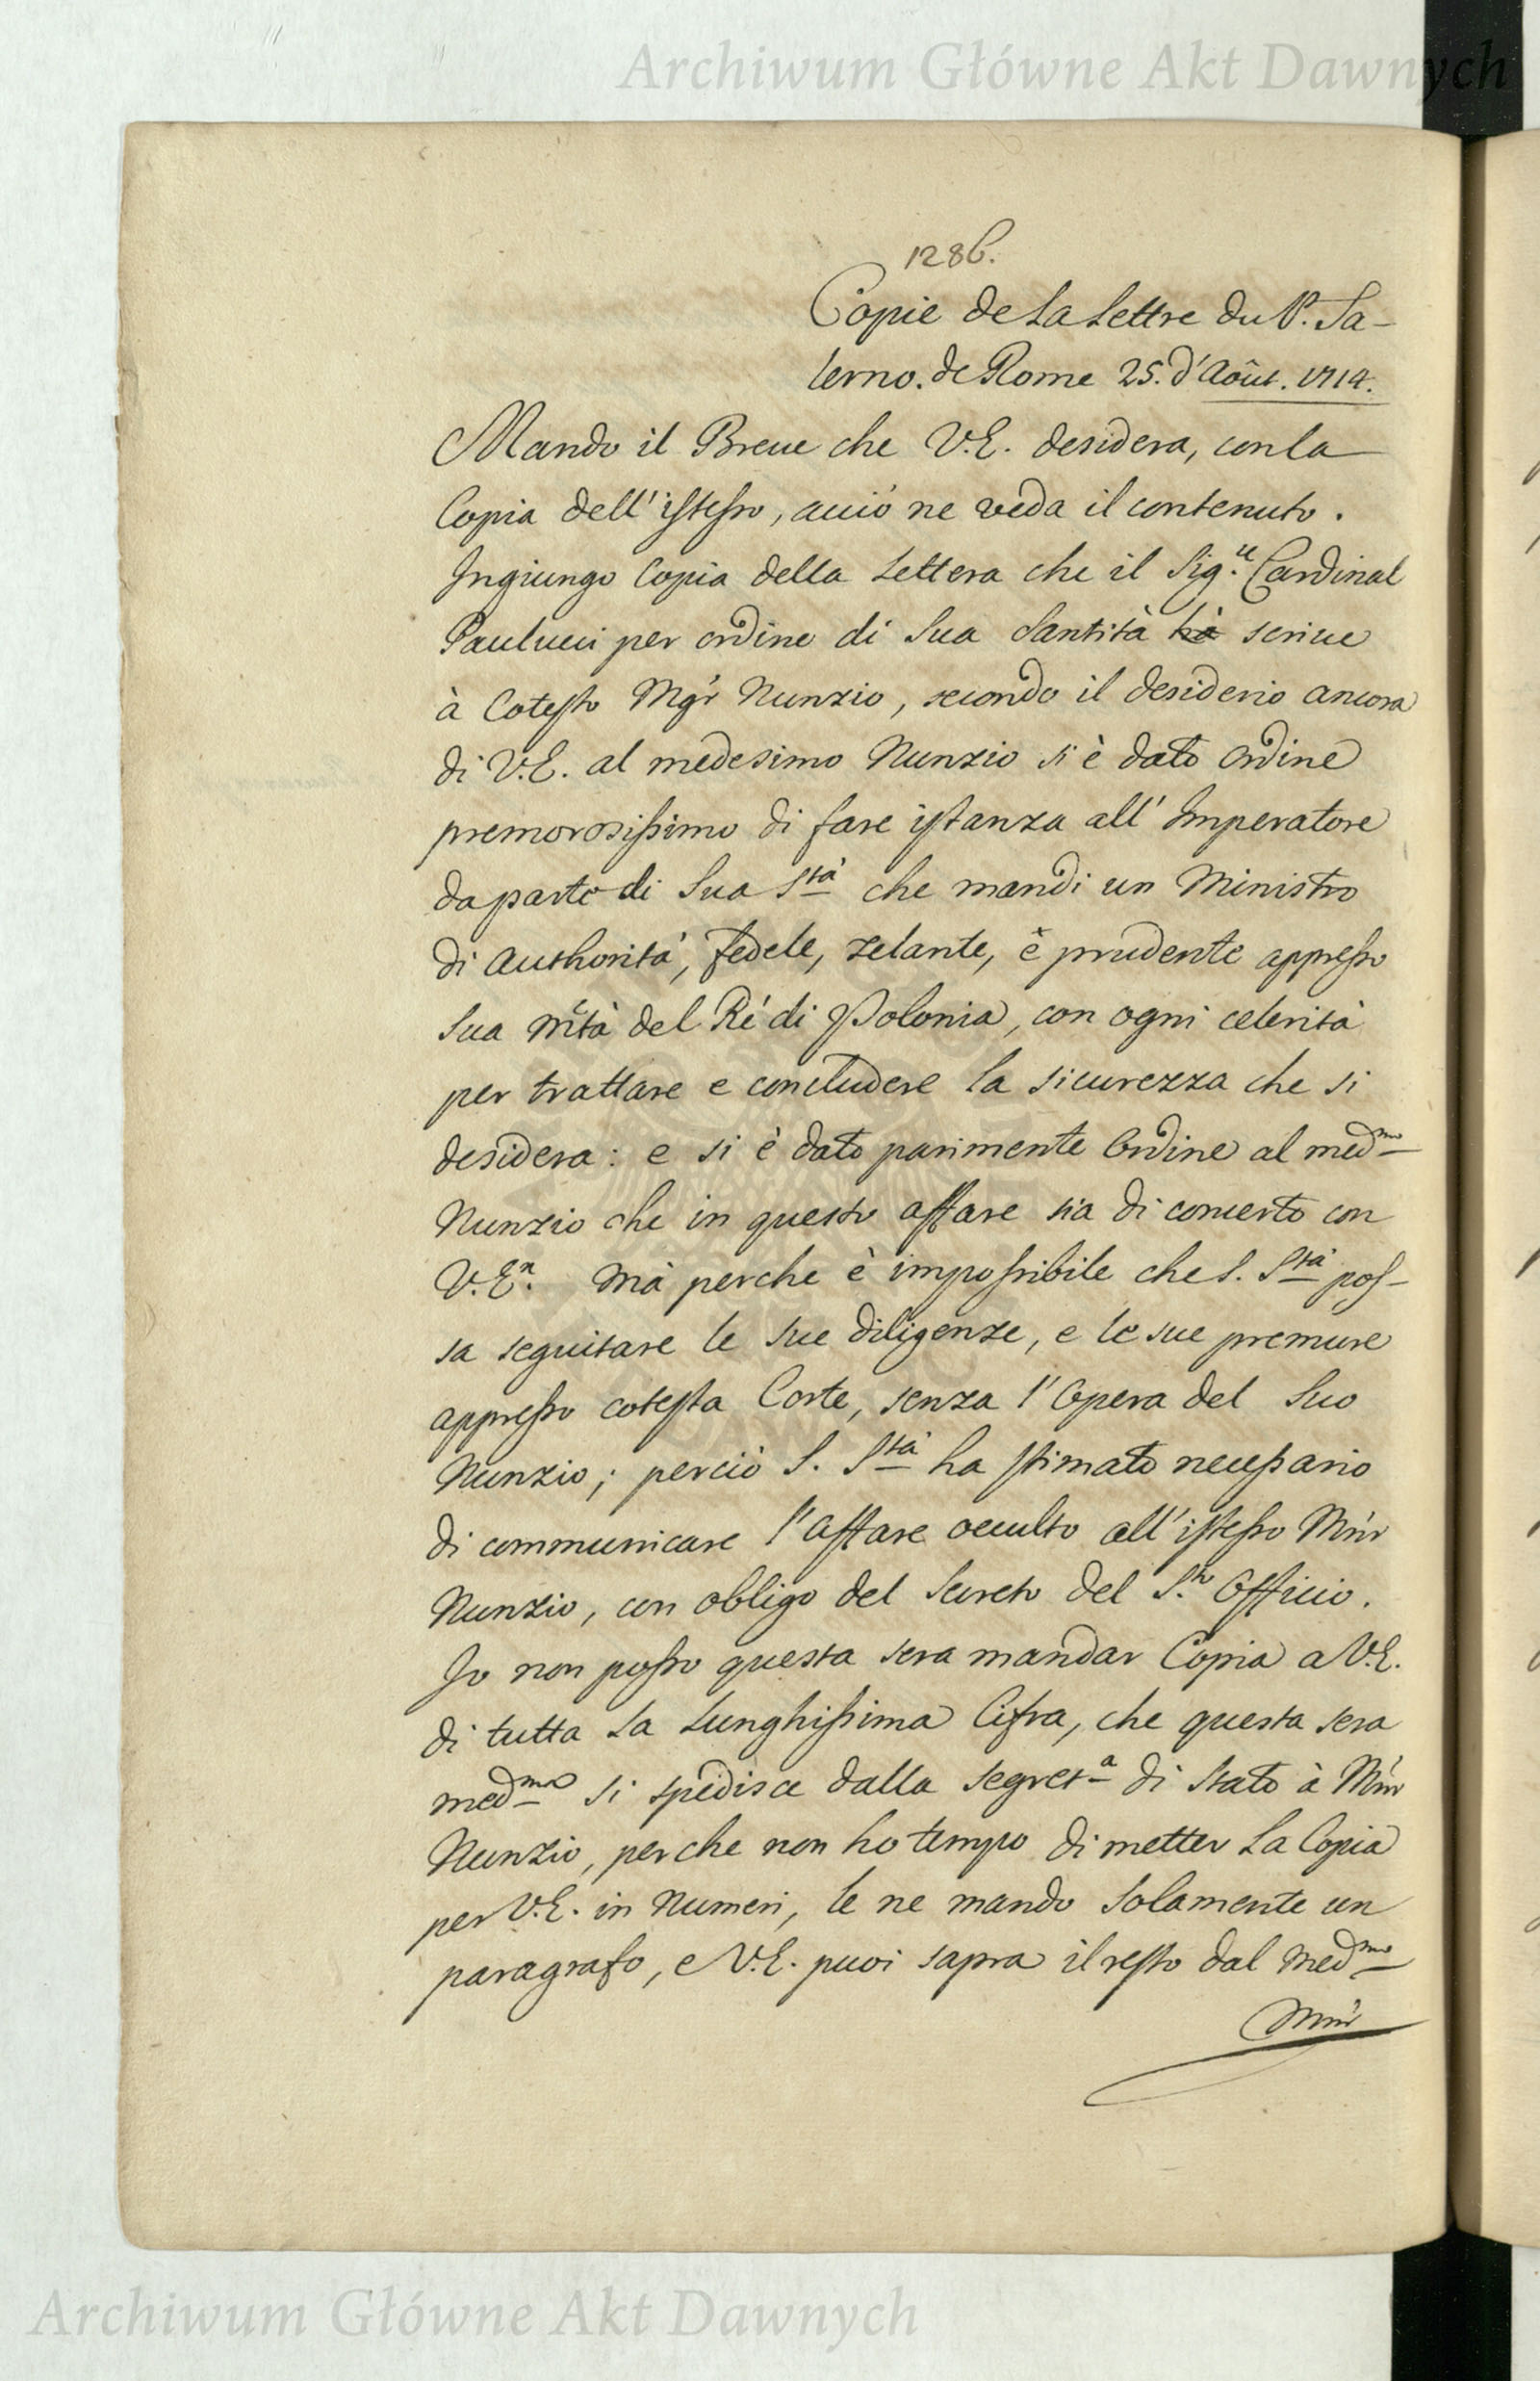 Archiwum Główne Akt Dawnych
128b.
Copie de La Lettre du P. Sa-
lerno. de Rome 25. d'Août. 1714.
Mando il Breue che V.E. desidera, con la
Copia dell'istesso, acciò ne veda il contenuto.
Ingiungo Copia della Lettera che il Sig.re Cardinal
Paulucci per ordine di Sua Santità hà scriue
à Cotesto Mgr Nunzio, secondo il desiderio ancora
di V.E. al medesimo Nunzio si è dato Ordine
premorosissimo di fare istanza all'Imperatore
da parte di Sua Stà che mandi un Ministro
di Authorità, fedele, zelante, è prudente appresso
Sua Mtà del Ré di Polonia, con ogni celerità
per trattare e concludere la sicurezza che si
desidera: e si è dato parimente Ordine al medmo
Nunzio che in questo affare sia di concerto con
V.En. Mà perche è impossibile che S. Stà pos-
sa seguitare le sue diligenze, e le sue premure
appresso cotesta Corte, senza l'Opera del Suo
Nunzio; perciò S. Stà ha stimato necessario
di communicare l'affare occulto all'istesso Mnr
Nunzio, con obligo del Secreto del S.to Officio.
Io non posso questa sera mandar Copia a V.E.
di tutta La Lunghissima Cifra, che questa sera
medma si spedisce dalla Segreta di Stato à Mnr
Nunzio, perche non ho tempo di metter La Copia
per V.E. in Numeri, le ne mando Solamente un
paragrafo, e V.E. puoi sapra il resto dal Medmo
Mnr
Archiwum Główne Akt Dawnych